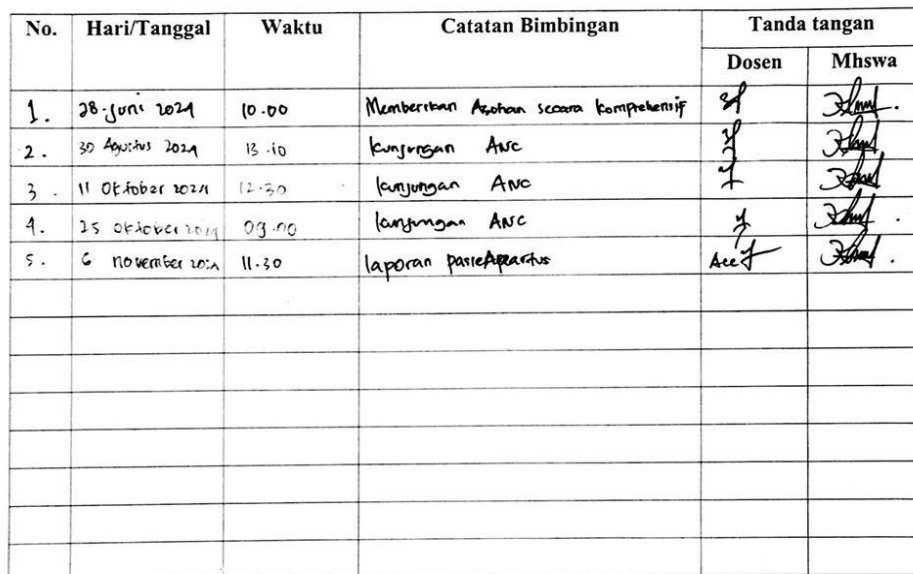 No. Hari/Tanggal Waktu Catatan Bimbingan Tanda tangan
Dosen Mhswa
1. 28 Juni 2024 10.00 Memberikan Asohan secara komprehensif
2. 30 Agustus 2024 13.10 kunjungan ANC
3. 11 Oktober 2024 12.30 kunjungan ANC
4. 25 Oktober 2024 09.00 kunjungan ANC
5. 6 november 2024 11.30 laporan pasien partus Acc